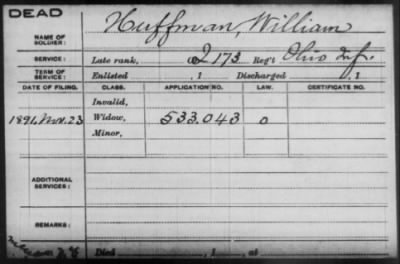 DEAD
NAME OF SOLDIER: Huffman, William
SERVICE: Late rank, 173 Reg't Ohio Inf.
TERM OF SERVICE: Enlisted , 1 Discharged , 1
DATE OF FILING. CLASS. APPLICATION NO. LAW. CERTIFICATE NO.
Invalid,
1891, Nov. 23 Widow, 533.043 o
Minor,
ADDITIONAL SERVICES:
REMARKS:
Died , 1 , at